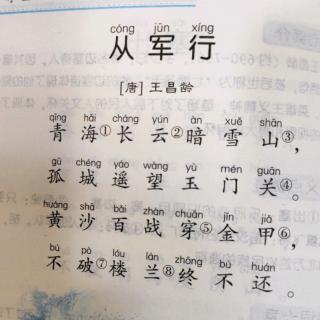 cóng jūn xíng
从军行
[唐]王昌龄
qīng hǎi cháng yún àn xuě shān
青海①长云②暗雪山③，
gū chéng yáo wàng yù mén guān
孤城遥望玉门关④。
huáng shā bǎi zhàn chuān jīn jiǎ
黄沙百战穿⑤金甲⑥，
bú pò lóu lán zhōng bù huán
不破⑦楼兰⑧终不还。